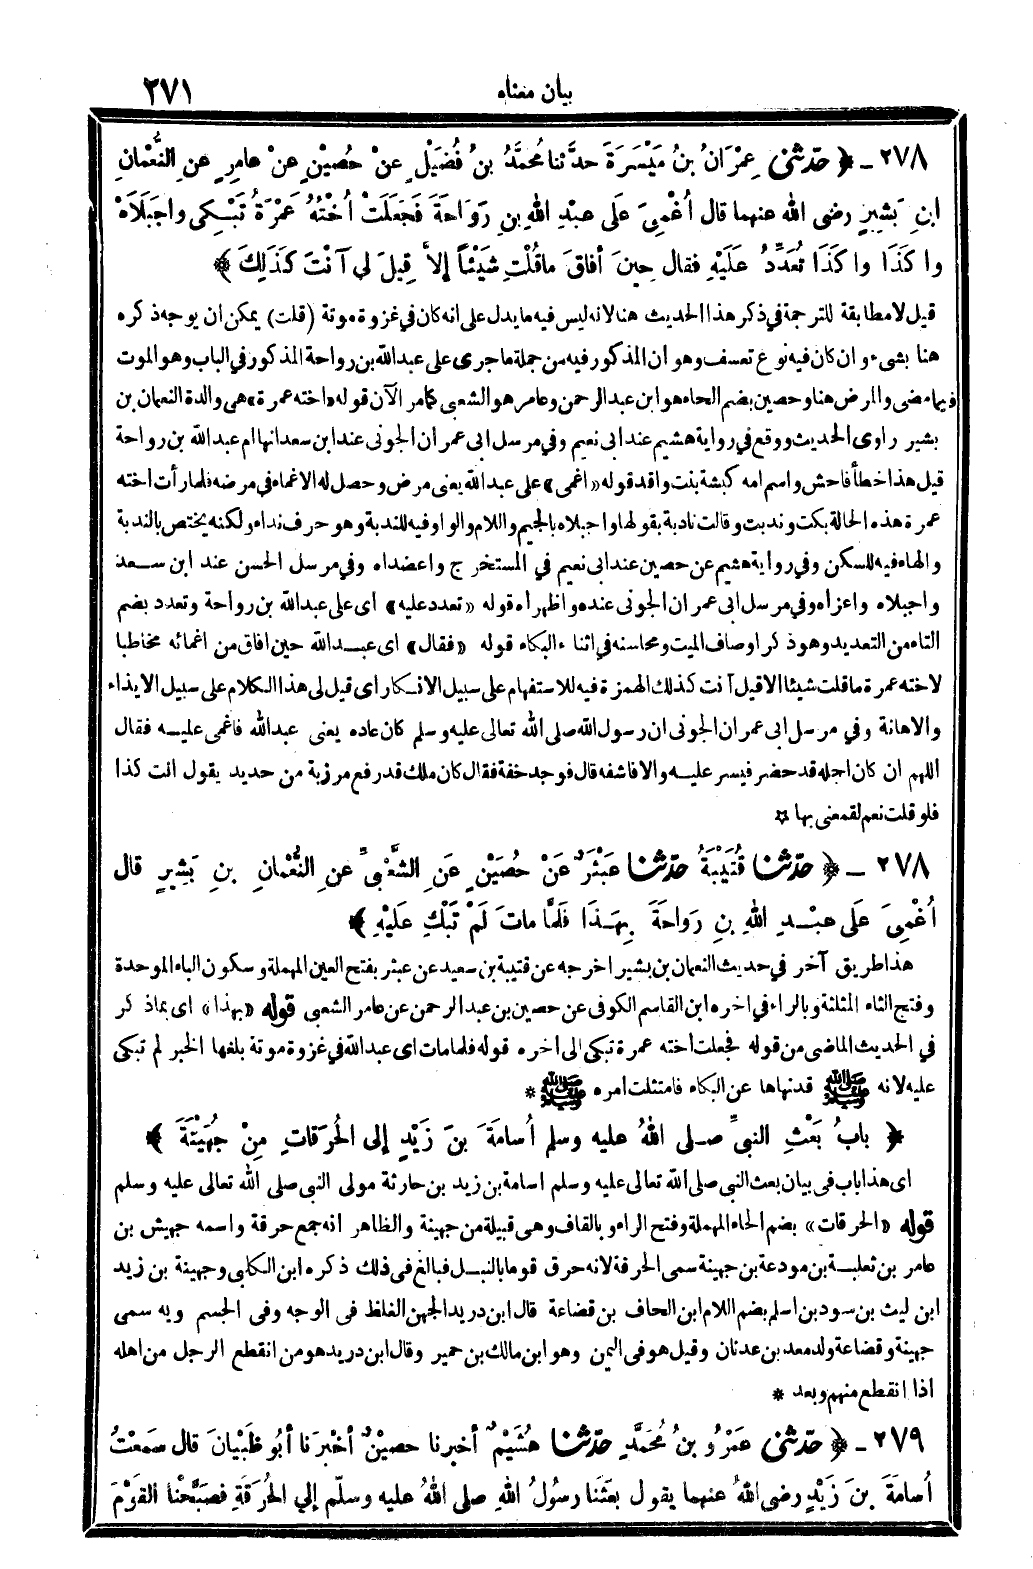 بيان معناه ٢٧١
٢٧٨ ـ ﴿ حدّثني عِمْرَانُ بنُ مَيْسَرَةَ حدثنا مُحَمَّدُ بنُ فُضَيْلٍ عنْ حُصَيْنٍ عنْ عامِرٍ عنِ النُّعْمانِ
ابنِ بَشِيرٍ رضي الله عنهما قال أُغْمِيَ عَلَى عبْدِ اللهِ بنِ رَوَاحةَ فَجَعَلَتْ أُخْتُهُ عَمْرَةُ تَبْكِي واجَبَلاَهْ
وا كَذَا وا كَذَا تُعَدِّدُ عَلَيْهِ فقال حِينَ أفاقَ ماقُلْتِ شَيْئاً إلاَّ قِيلَ لي آنْتَ كَذَلِكَ ﴾
قيل لا مطابقة للترجمة في ذكر هذا الحديث هنا لانه ليس فيه ما يدل على انه كان في غزوة موتة (قلت) يمكن ان يوجه ذكره
هنا بشيء وان كان فيه نوع تعسف وهو ان المذكور فيه من جملة ما جرى على عبدالله بن رواحة المذكور في الباب وهو الموت
فيما مضى والمرض هنا وحصين بضم الحاء هو ابن عبد الرحمن وعامر هو الشعبي كما مر الآن قوله «اخته عمرة» هي والدة النعمان بن
بشير راوى الحديث ووقع في رواية هشيم عند ابي نعيم وفي مرسل ابي عمران الجوني عند ابن سعد انها ام عبدالله بن رواحة
قيل هذا خطأ فاحش واسم امه كبشة بنت واقد قوله «اغمى» على عبدالله يعنى مرض وحصل له الاغماء في مرضه فلما رأت اخته
عمرة هذه الحالة بكت وندبت وقالت نادبة بقولها واجبلاه بالجيم واللام والواو فيه للندبة وهو حرف نداء ولكنه يختص بالندبة
والهاء فيه للسكن وفي رواية هشيم عن حصين عند ابى نعيم في المستخرج واعضداه وفي مرسل الحسن عند ابن سعد
واجبلاه واعزاه وفي مرسل ابى عمران الجونى عنده واظهراه قوله «تعدد عليه» اى على عبدالله بن رواحة وتعدد بضم
التاء من التعديد وهو ذكر اوصاف الميت ومحاسنه في اثناء البكاء قوله «فقال» اى عبدالله حين افاق من اغمائه مخاطبا
لاخته عمرة ما قلت شيئا الا قيل آنت كذلك الهمزة فيه للاستفهام على سبيل الانكار اى قيل لى هذا الكلام على سبيل الايذاء
والاهانة وفي مرسل ابى عمران الجونى ان رسول الله صلى الله تعالى عليه وسلم كان عاده يعنى عبدالله فاغمى عليه فقال
اللهم ان كان اجله قد حضر فيسر عليه والا فاشفه قال فوجد خفة فقال كان ملك قد رفع مرزبة من حديد يقول انت كذا
فلو قلت نعم لقمعنى بها ✩
٢٧٨ ـ ﴿ حدّثنا قُتَيْبَةُ حدّثنا عَبْثَرٌ عَنْ حُصَيْنٍ عَنِ الشَّعْبِيِّ عنِ النُّعْمانِ بنِ بَشِيرٍ قال
أُغْمِيَ عَلَى عبْدِ اللهِ بنِ رَوَاحَةَ بِهَذَا فَلَمَّا ماتَ لَمْ تَبْكِ عَلَيْهِ ﴾
هذا طريق آخر في حديث النعمان بن بشير اخرجه عن قتيبة بن سعيد عن عبثر بفتح العين المهملة وسكون الباء الموحدة
وفتح الثاء المثلثة وبالراء في اخره ابن القاسم الكوفى عن حصين بن عبد الرحمن عن عامر الشعبى قوله «بهذا» اى بما ذكر
في الحديث الماضى من قوله فجعلت أخته عمرة تبكى الى اخره قوله فلما مات اى عبدالله في غزوة موتة بلغها الخبر لم تبكى
عليه لانه ﷺ قد نهاها عن البكاء فامتثلت امره ﷺ *
﴿ بابُ بَعْثِ النبيِّ صلى اللهُ عليه وسلم أُسامَةَ بنَ زَيْدٍ إلى الحُرَقاتِ مِنْ جُهَيْنَةَ ﴾
اى هذا باب فى بيان بعث النبي صلى الله تعالى عليه وسلم اسامة بن زيد بن حارثة مولى النبي صلى الله تعالى عليه وسلم
قوله «الحرقات» بضم الحاء المهملة وفتح الراء وبالقاف وهى قبيلة من جهينة والظاهر انه جمع حرقة واسمه جهيش بن
عامر بن ثعلبة بن مودعة بن جهينة سمى الحرقة لانه حرق قوما بالنبل فبالغ فى ذلك ذكره ابن الكلبى وجهينة بن زيد
ابن ليث بن سود بن اسلم بضم اللام ابن الحاف بن قضاعة قال ابن دريد الجهن الغلظ فى الوجه وفى الجسم وبه سمى
جهينة وقضاعة ولد معد بن عدنان وقيل هو فى اليمن وهو ابن مالك بن حمير وقال ابن دريد هو من انقطع الرجل من اهله
اذا انقطع منهم وبعد *
٢٧٩ ـ ﴿ حدّثني عَمْرُو بنُ مُحَمَّدٍ حدّثنا هُشَيْمٌ أخبرنا حصيْنٌ أخْبرَنا أبُو ظَبْيانَ قال سَمعْتُ
أُسامَةَ بنَ زَيْدٍ رضي اللهُ عنهما يقول بعَثَنا رسُولُ اللهِ صلى اللهُ عليه وسلّم إلي الحُرَقَةِ فصَبَّحْنا القَوْمَ